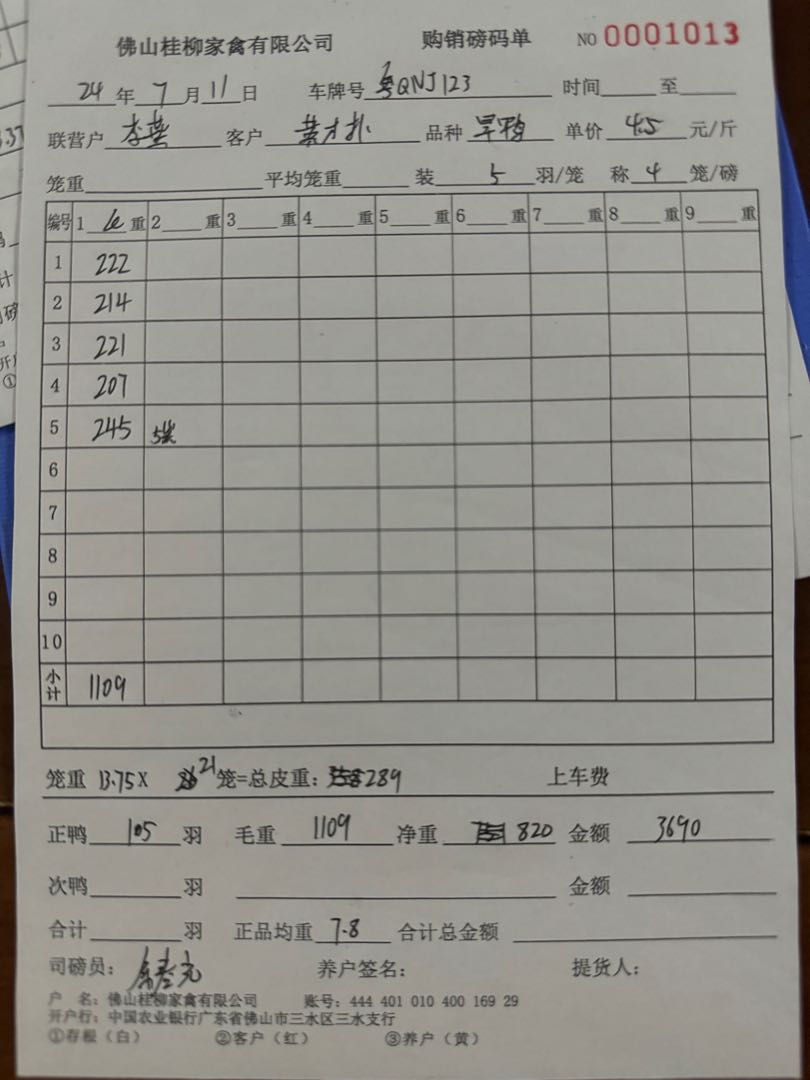 佛山桂柳家禽有限公司 购销磅码单 NO 0001013
24 年 7 月 11 日 车牌号 粤QNJ123 时间 至
联营户 李燕 客户 黄才扑 品种 旱鸭 单价 4.5 元/斤
笼重 平均笼重 装 5 羽/笼 称 4 笼/磅
编号 1 重 2 重 3 重 4 重 5 重 6 重 7 重 8 重 9 重
1 222
2 214
3 221
4 207
5 245 5笼
6
7
8
9
10
小计 1109
笼重 13.75X 21 笼=总皮重: 289 上车费
正鸭 105 羽 毛重 1109 净重 820 金额 3690
次鸭 羽 金额
合计 羽 正品均重 7.8 合计总金额
司磅员: 养户签名: 提货人:
户 名: 佛山桂柳家禽有限公司 账号: 444 401 010 400 169 29
开户行: 中国农业银行广东省佛山市三水区三水支行
①存根(白) ②客户(红) ③养户(黄)